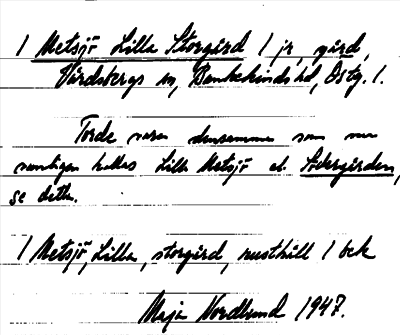 1 Metsjö Lilla Storgård 1 jr, gård,
Vårdsbergs sn, Bankekinds hd, Östg. l.
Torde vara densamma som nu
vanligen kallas Lilla Metsjö el. Södergården,
se detta.
1 Metsjö, Lilla, storgård, rusthåll 1 bck
Maja Nordlund 1947.